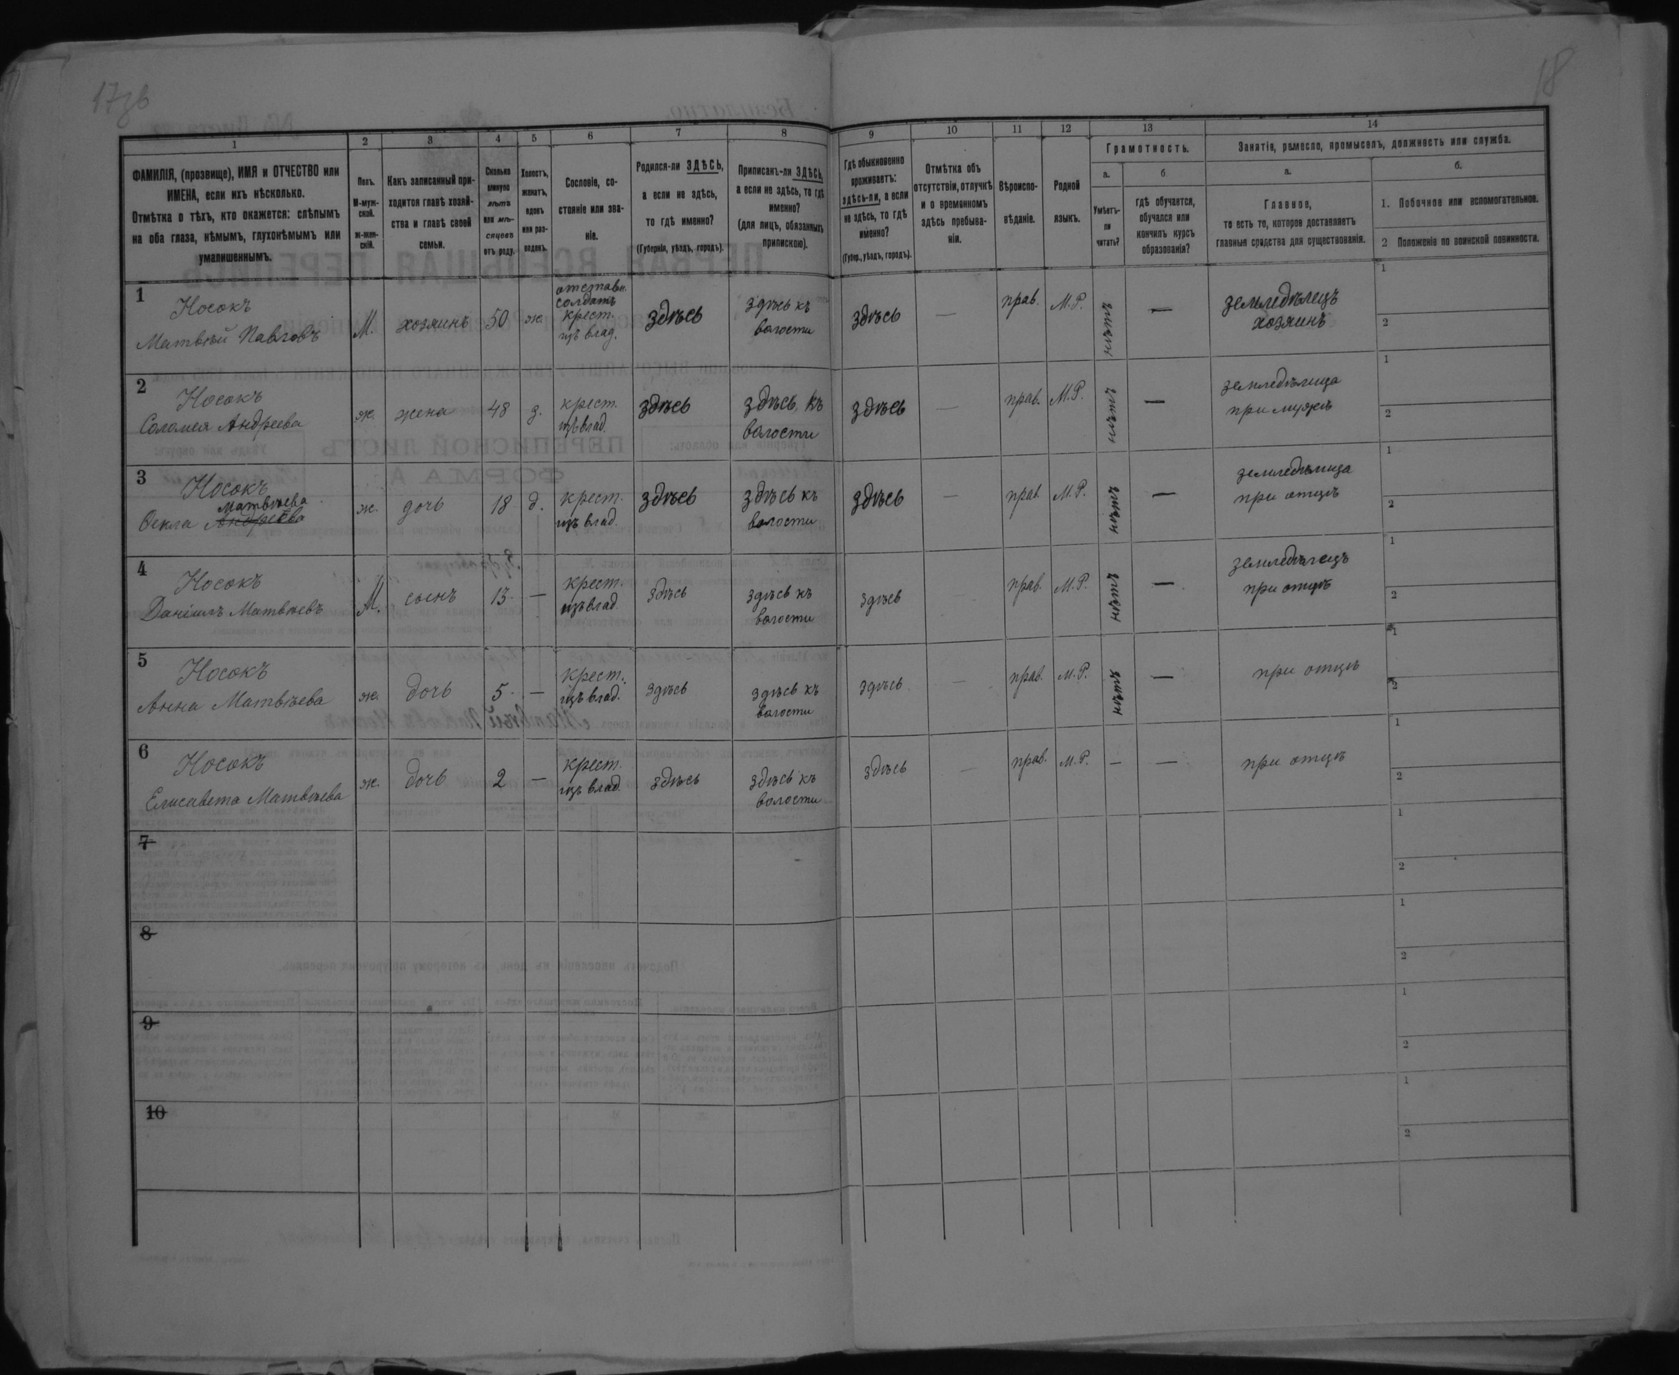 17об
18
1
2
3
4
5
6
7
8
9
10
11
12
13
14
ФАМИЛІЯ, (прозвище), ИМЯ и ОТЧЕСТВО или
ИМЕНА, если ихъ нѣсколько.
Отмѣтка о тѣхъ, кто окажется: слѣпымъ
на оба глаза, нѣмымъ, глухонѣмымъ или
умалишеннымъ.
Полъ.
М-муж-
ской.
ж-жен-
скій.
Какъ записанный при-
ходится главѣ хозяй-
ства и главѣ своей
семьи.
Сколько
минуло
лѣтъ
или мѣ-
сяцевъ
отъ роду.
Холостъ,
женатъ,
вдовъ
или раз-
веденъ.
Сословіе, со-
стояніе или зва-
ніе.
Родился-ли ЗДѢСЬ,
а если не здѣсь,
то гдѣ именно?
(Губернія, уѣздъ, городъ).
Приписанъ-ли ЗДѢСЬ,
а если не здѣсь, то гдѣ
именно?
(для лицъ, обязанныхъ
припискою).
Гдѣ обыкновенно
проживаетъ:
здѣсь-ли, а если
не здѣсь, то гдѣ
именно?
(Губер., уѣздъ, городъ).
Отмѣтка объ
отсутствіи, отлучкѣ
и о временномъ
здѣсь пребыва-
ніи.
Вѣроиспо-
вѣданіе.
Родной
языкъ.
Грамотность.
а.
Умѣетъ-
ли
читать?
б
гдѣ обучается,
обучался или
кончилъ курсъ
образованія?
Занятіе, ремесло, промыселъ, должность или служба.
а.
Главное,
то есть то, которое доставляетъ
главныя средства для существованія.
б.
1. Побочное или вспомогательное.
2 Положеніе по воинской повинности.
1
Носокъ
Матвѣй Павловъ
М.
хозяинъ
50
ж.
отставн.
солдатъ
крест.
изъ влад.
здѣсь
здѣсь къ
волости
здѣсь
—
прав.
М.Р.
нѣтъ
—
земледѣлецъ
хозяинъ
1
2
2
Носокъ
Соломея Андреева
ж.
жена
48
з.
крест.
изъ влад.
здѣсь
здѣсь къ
волости
здѣсь
—
прав.
М.Р.
нѣтъ
—
земледѣлица
при мужѣ
1
2
3
Носокъ
Матвѣева
Ѳекла Андреева
ж.
дочь
18
д.
крест.
изъ влад.
здѣсь
здѣсь къ
волости
здѣсь
—
прав.
М.Р.
нѣтъ
—
земледѣлица
при отцѣ
1
2
4
Носокъ
Даніилъ Матвѣевъ
М.
сынъ
13
—
крест.
изъ влад.
здѣсь
здѣсь къ
волости
здѣсь
прав.
М.Р.
нѣтъ
—
земледѣлецъ
при отцѣ
1
2
5
Носокъ
Анна Матвѣева
ж.
дочь
5
—
крест.
изъ влад.
здѣсь
здѣсь къ
волости
здѣсь
—
прав.
М.Р.
нѣтъ
—
при отцѣ
1
2
6
Носокъ
Елисавета Матвѣева
ж.
дочь
2
—
крест.
изъ влад.
здѣсь
здѣсь къ
волости
здѣсь
—
прав.
М.Р.
—
—
при отцѣ
1
2
7
1
2
8
1
2
9
1
2
10
1
2